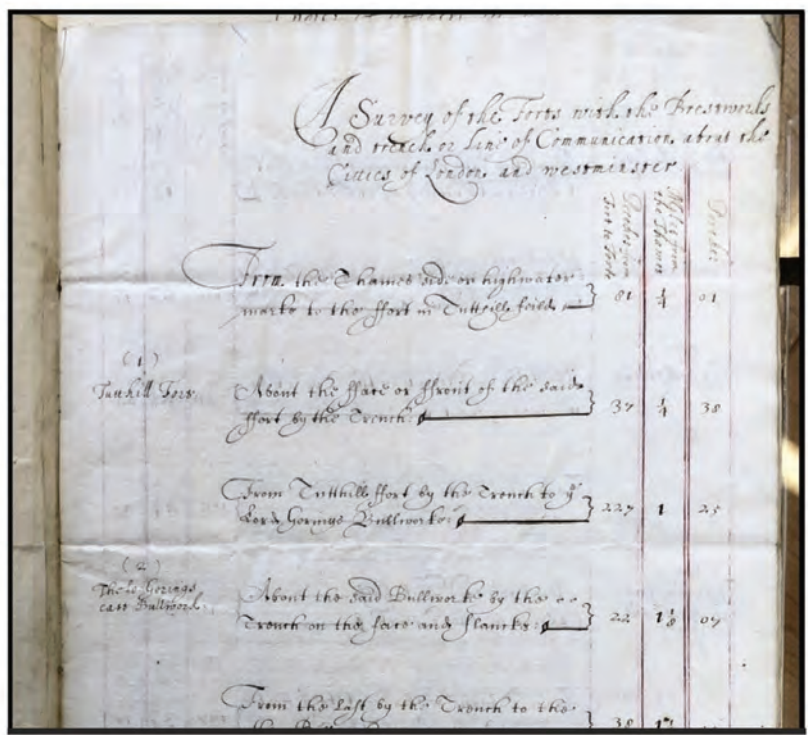 A Survey of the Forts with the Brestworks
and trench or Line of Communication about the
Citties of London and westminster
Perches from
Fort to Forte
Myles from
the Thames
Perches
From the Thames side or highwater
marke to the ffort in Tuttill feilds 81 1/4 01
(1)
Tutthill Fort
About the fface or ffront of the said
ffort by the Trench: 37 1/4 38
From Tutthill ffort by the Trench to ye
Lord Gorings Bullworke: 227 1 25
(2)
The Lo: Gorings
east Bullwork
About the said Bullworke by the
Trench on the face and flancke: 22 1 1/8 07
From the Last by the Trench to the
38